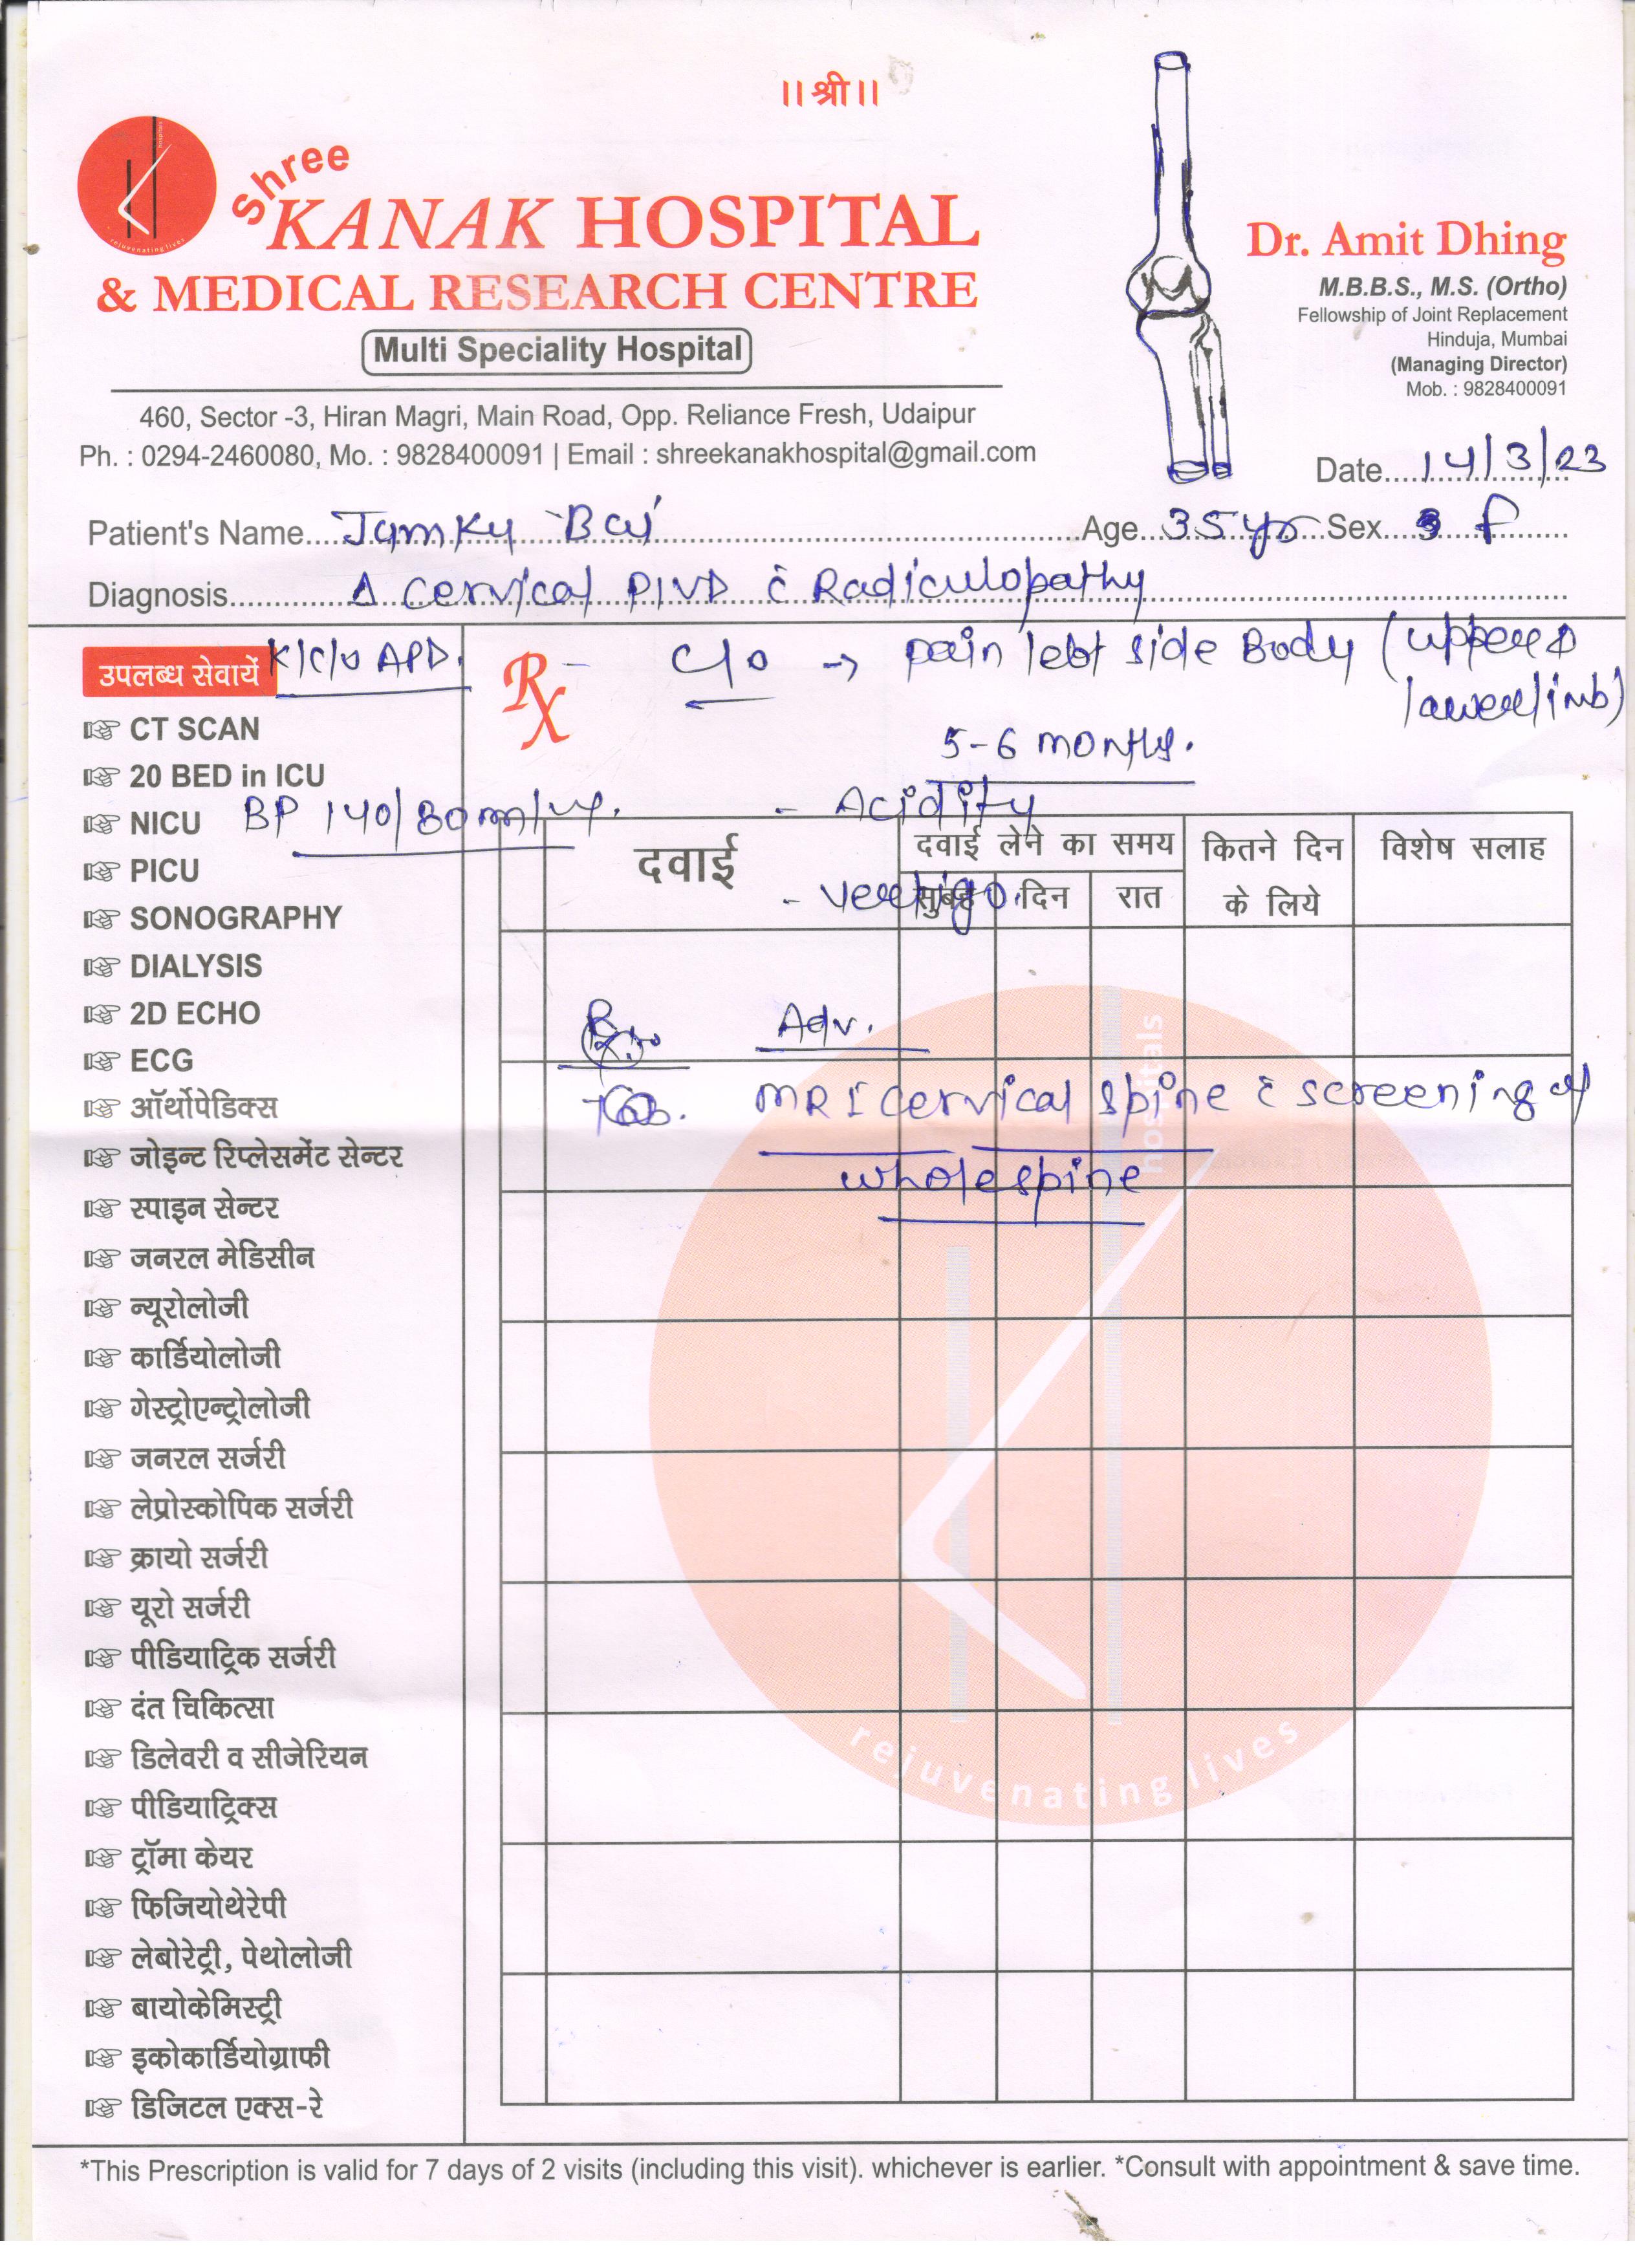 ।। श्री ।।
Shree
KANAK HOSPITAL
& MEDICAL RESEARCH CENTRE
Multi Speciality Hospital
460, Sector -3, Hiran Magri, Main Road, Opp. Reliance Fresh, Udaipur
Ph. : 0294-2460080, Mo. : 9828400091 | Email : shreekanakhospital@gmail.com
rejuvenating lives
Dr. Amit Dhing
M.B.B.S., M.S. (Ortho)
Fellowship of Joint Replacement
Hinduja, Mumbai
(Managing Director)
Mob. : 9828400091
Date....14/3/23
Patient's Name....Jamky Bai Age...35 yrs Sex.... F
Diagnosis............Δ Cervical PIVD c̄ Radiculopathy
उपलब्ध सेवायें K/C/o APD.
C/o → pain left side Body (upper &
lower limb)
5-6 months.
BP 140/80 mm/
- Acidity
- vertigo.
दवाई दवाई लेने का समय कितने दिन के लिये विशेष सलाह
सुबह दिन रात
Rx Adv.
Tab. MRI Cervical Spine c̄ screening of
whole spine
CT SCAN
20 BED in ICU
NICU
PICU
SONOGRAPHY
DIALYSIS
2D ECHO
ECG
ऑर्थोपेडिक्स
जोइन्ट रिप्लेसमेंट सेन्टर
स्पाइन सेन्टर
जनरल मेडिसीन
न्यूरोलोजी
कार्डियोलोजी
गेस्ट्रोएन्ट्रोलोजी
जनरल सर्जरी
लेप्रोस्कोपिक सर्जरी
क्रायो सर्जरी
यूरो सर्जरी
पीडियाट्रिक सर्जरी
दंत चिकित्सा
डिलेवरी व सीजेरियन
पीडियाट्रिक्स
ट्रॉमा केयर
फिजियोथेरेपी
लेबोरेट्री, पेथोलोजी
बायोकेमिस्ट्री
इकोकार्डियोग्राफी
डिजिटल एक्स-रे
hospitals
rejuvenating lives
*This Prescription is valid for 7 days of 2 visits (including this visit). whichever is earlier. *Consult with appointment & save time.